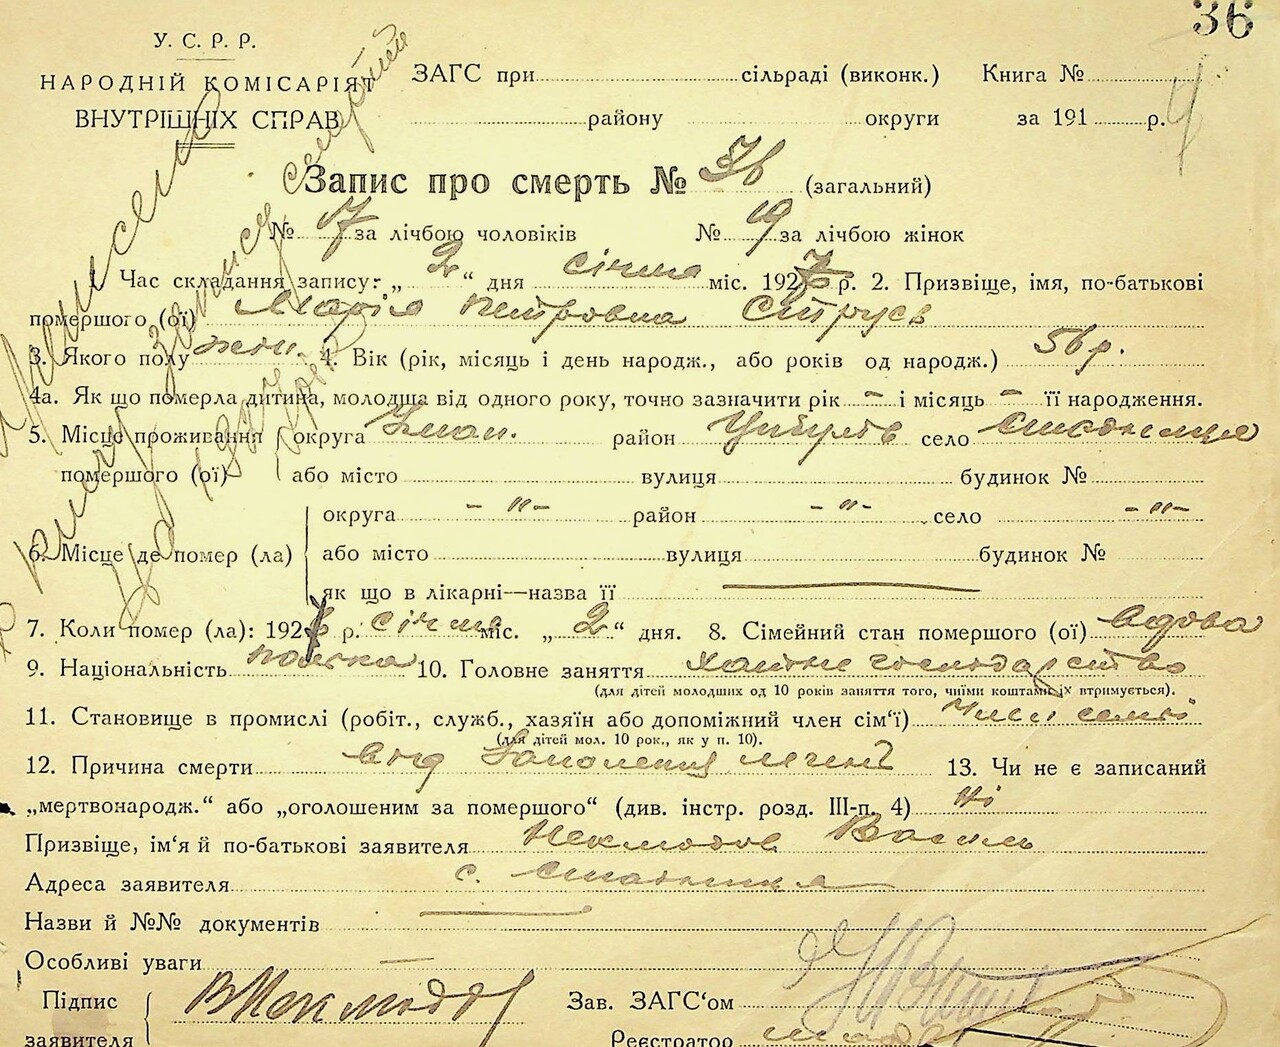 36
У. С. Р. Р.
НАРОДНІЙ КОМІСАРІЯТ
ВНУТРІШНІХ СПРАВ
ЗАГС при сільраді (виконк.) Книга №
району округи за 191 р.
Запис про смерть № 36 (загальний)
№ 17 за лічбою чоловіків № 19 за лічбою жінок
Час складання запису: „ 2 “ дня січня міс. 1927 р. 2. Призвіще, імя, по-батькові
помершого (ої) Марія Петровна Струсь
3. Якого полу жін. 4. Вік (рік, місяць і день народж., або років од народж.) 56 р.
4а. Як що померла дитина, молодша від одного року, точно зазначити рік - і місяць - її народження.
5. Місце проживання округа Уман. район село
помершого (ої) або місто вулиця будинок №
округа - „ - район - „ - село - „ -
6. Місце де помер (ла) або місто вулиця будинок №
як що в лікарні—назва її
7. Коли помер (ла): 1927 р. січня міс. „ 2 “ дня. 8. Сімейний стан помершого (ої) вдова
9. Національність полька 10. Головне заняття хатнє господарство
(для дітей молодших од 10 років заняття того, чиїми коштами їх втримується).
11. Становище в промислі (робіт., служб., хазяїн або допоміжний член сім‘ї) член семьї
(для дітей мол. 10 рок., як у п. 10).
12. Причина смерти від запалення легенів 13. Чи не є записаний
„мертвонародж.“ або „оголошеним за помершого“ (див. інстр. розд. III-п. 4) ні
Призвіще, ім‘я й по-батькові заявителя Василь
Адреса заявителя с.
Назви й №№ документів
Особливі уваги —
Підпис
заявителя
Зав. ЗАГС‘ом
Реєстратор